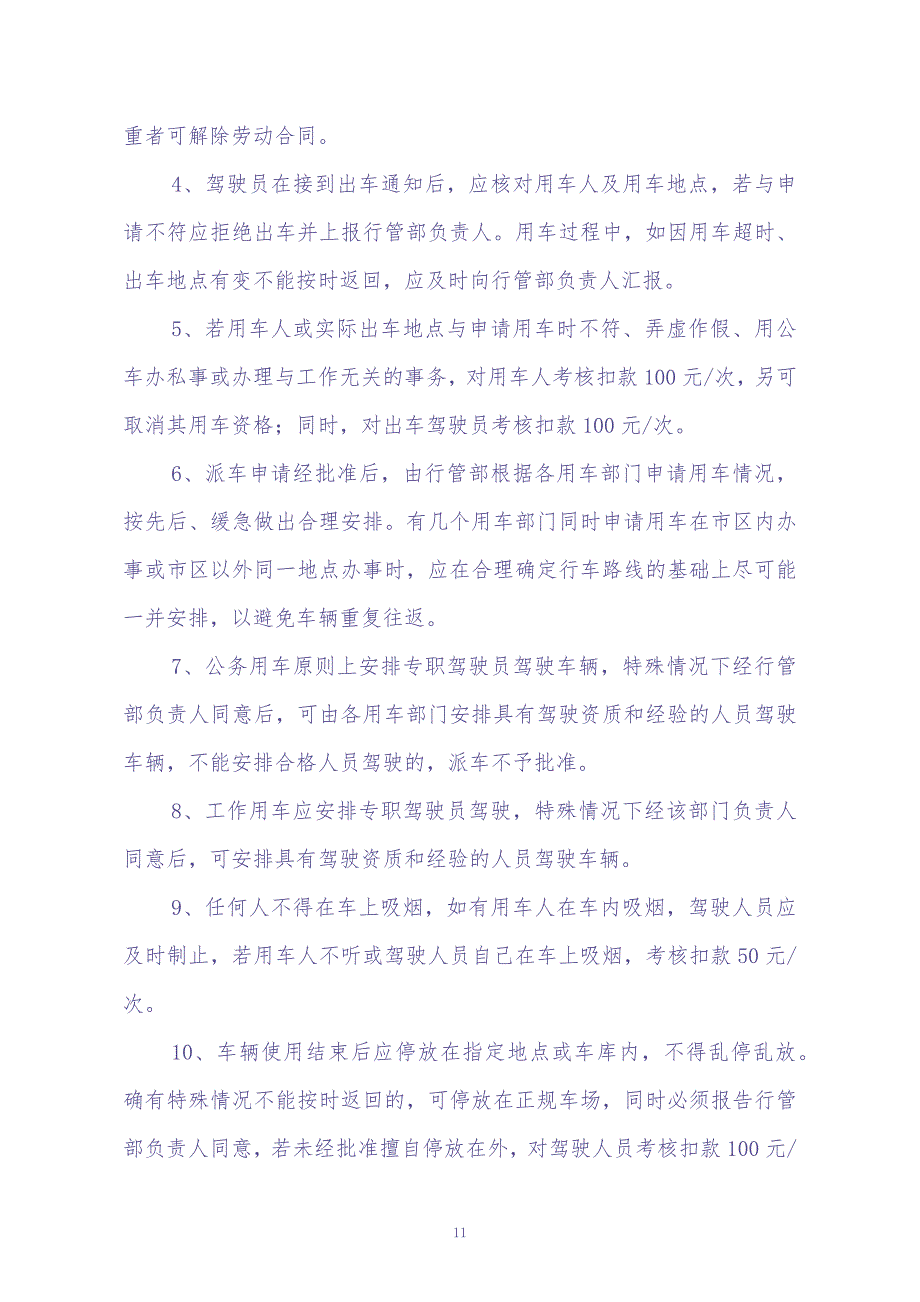 重者可解除劳动合同。
4、驾驶员在接到出车通知后，应核对用车人及用车地点，若与申
请不符应拒绝出车并上报行管部负责人。用车过程中，如因用车超时、
出车地点有变不能按时返回，应及时向行管部负责人汇报。
5、若用车人或实际出车地点与申请用车时不符、弄虚作假、用公
车办私事或办理与工作无关的事务，对用车人考核扣款 100 元/次，另可
取消其用车资格；同时，对出车驾驶员考核扣款 100 元/次。
6、派车申请经批准后，由行管部根据各用车部门申请用车情况，
按先后、缓急做出合理安排。有几个用车部门同时申请用车在市区内办
事或市区以外同一地点办事时，应在合理确定行车路线的基础上尽可能
一并安排，以避免车辆重复往返。
7、公务用车原则上安排专职驾驶员驾驶车辆，特殊情况下经行管
部负责人同意后，可由各用车部门安排具有驾驶资质和经验的人员驾驶
车辆，不能安排合格人员驾驶的，派车不予批准。
8、工作用车应安排专职驾驶员驾驶，特殊情况下经该部门负责人
同意后，可安排具有驾驶资质和经验的人员驾驶车辆。
9、任何人不得在车上吸烟，如有用车人在车内吸烟，驾驶人员应
及时制止，若用车人不听或驾驶人员自己在车上吸烟，考核扣款 50 元/
次。
10、车辆使用结束后应停放在指定地点或车库内，不得乱停乱放。
确有特殊情况不能按时返回的，可停放在正规车场，同时必须报告行管
部负责人同意，若未经批准擅自停放在外，对驾驶人员考核扣款 100 元/
11